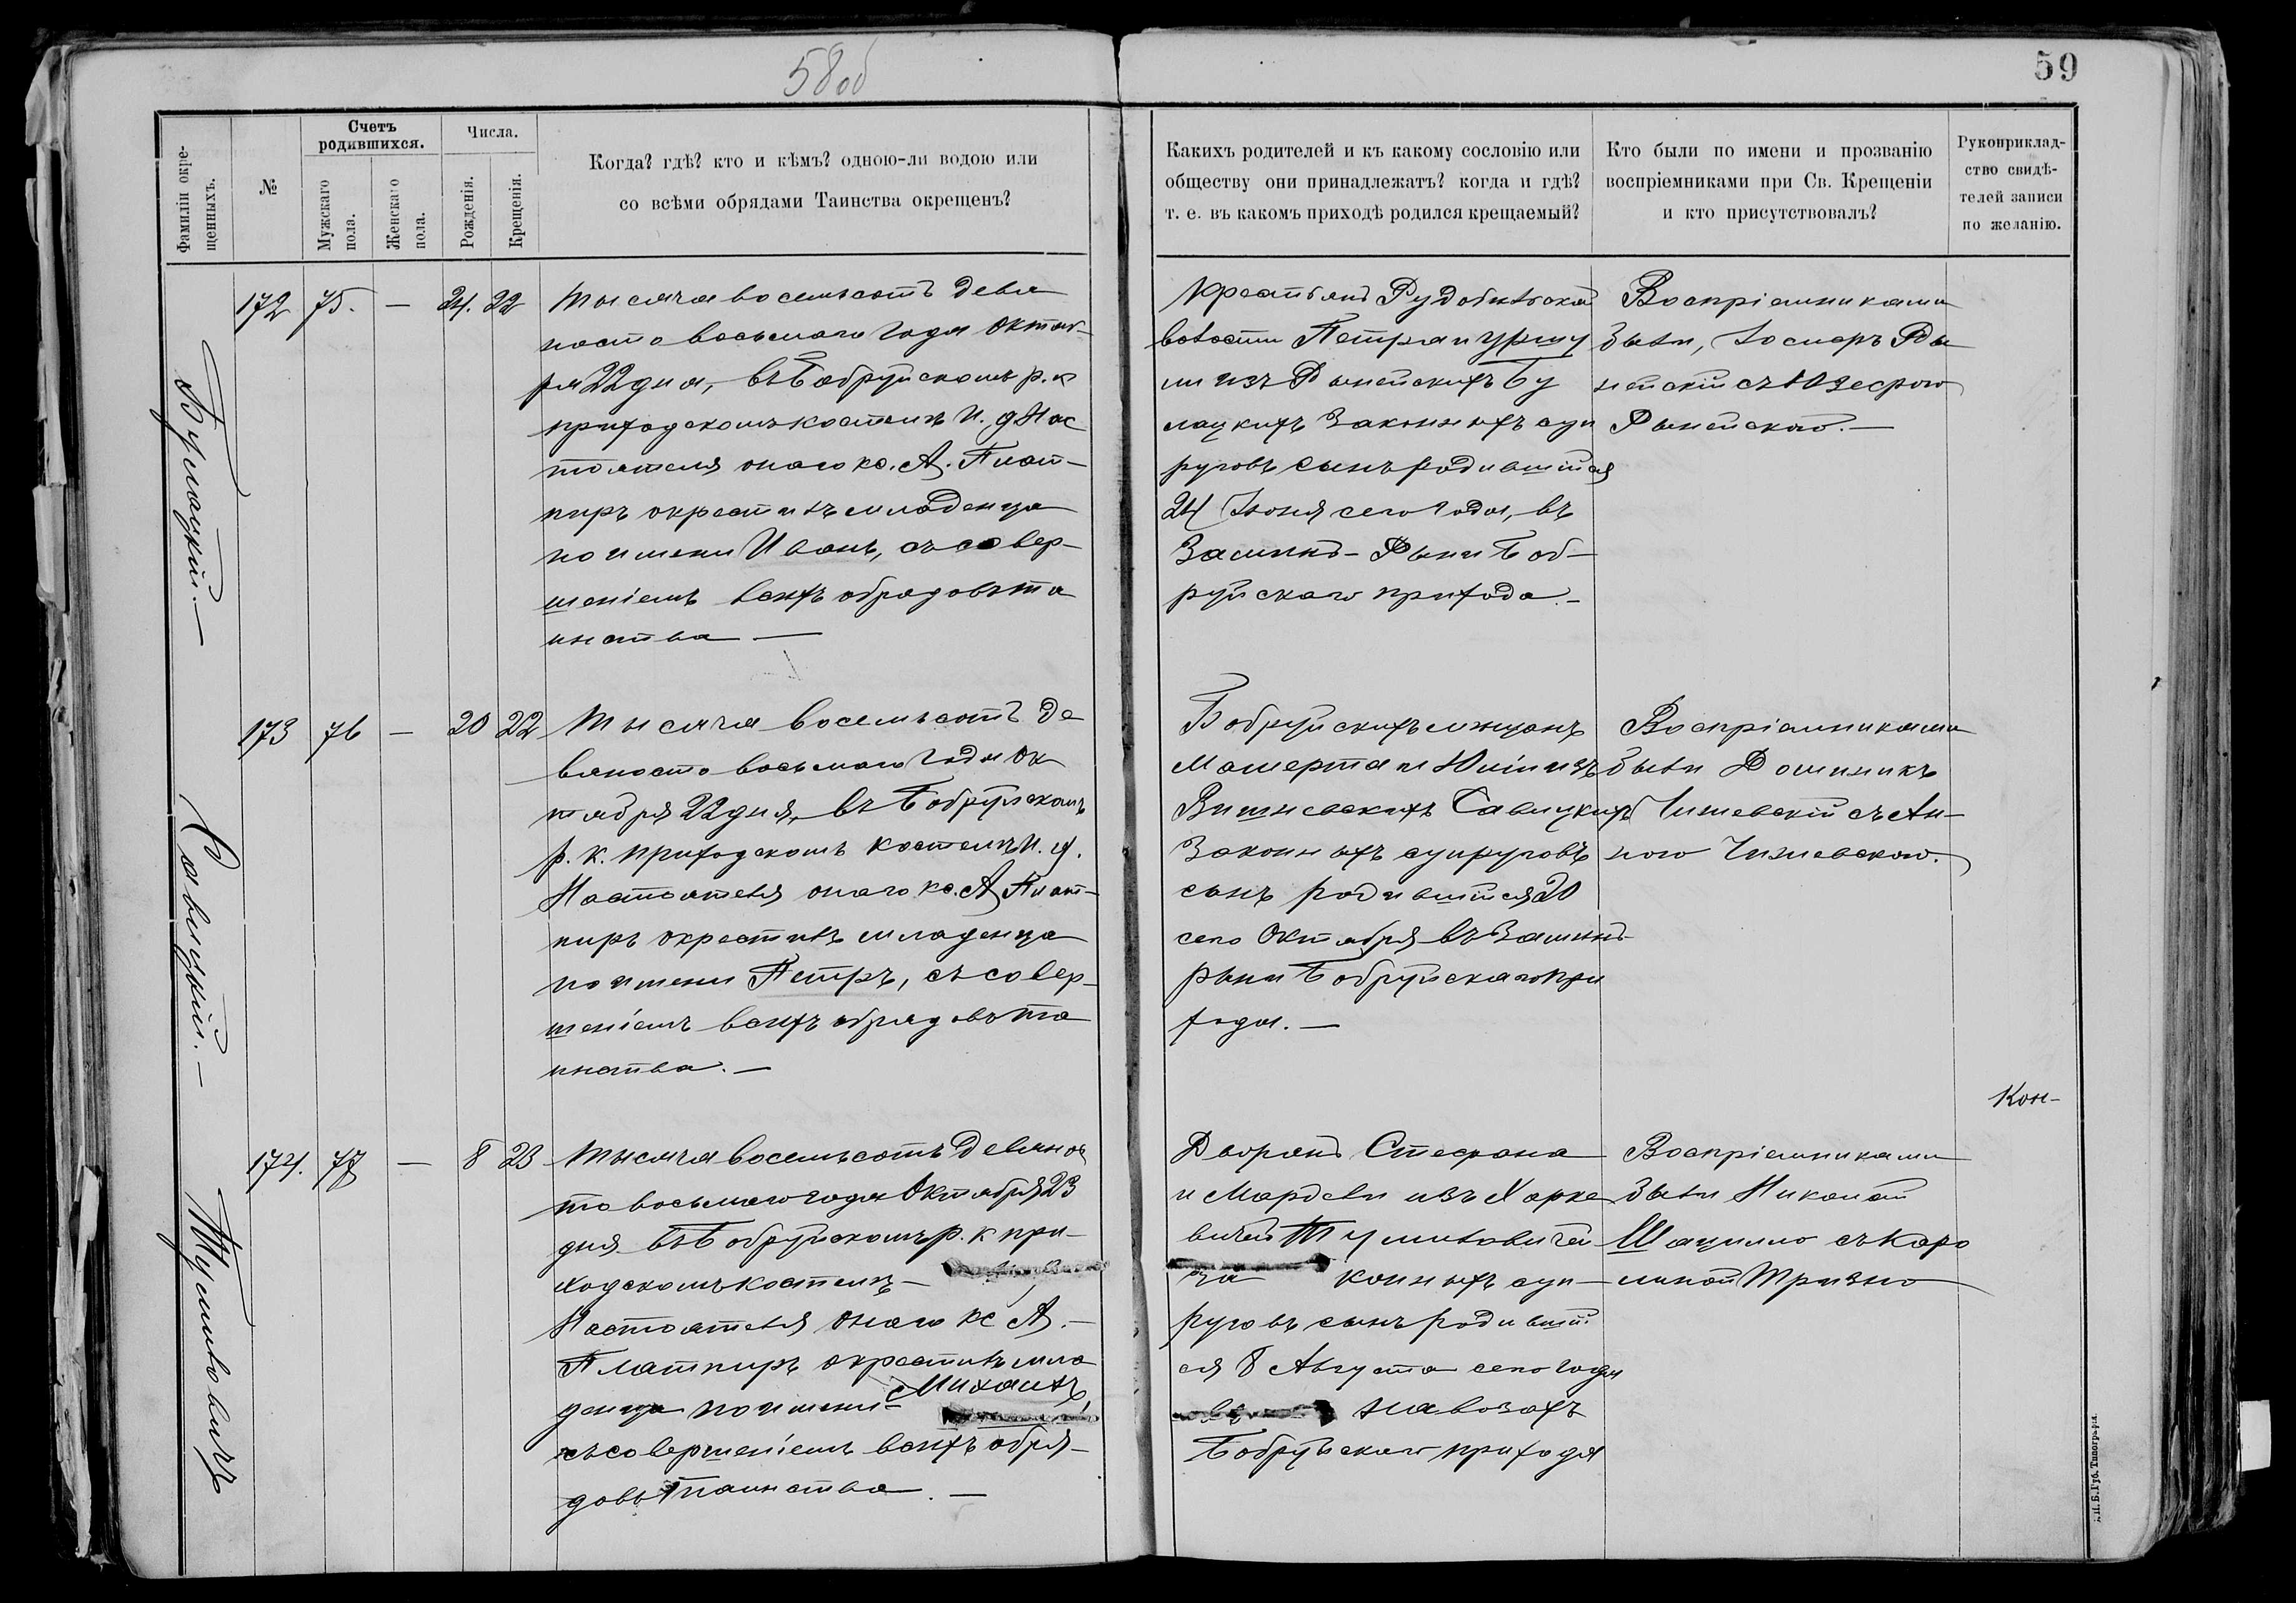 58 об
59
Фамиліи окре-
щенныхъ.
№
Счетъ
родившихся.
Мужскаго
пола.
Женскаго
пола.
Числа.
Рожденія.
Крещенія.
Когда? гдѣ? кто и кѣмъ? одною-ли водою или
со всѣми обрядами Таинства окрещенъ?
Какихъ родителей и къ какому сословію или
обществу они принадлежатъ? когда и гдѣ?
т. е. въ какомъ приходѣ родился крещаемый?
Кто были по имени и прозванію
воспріемниками при Св. Крещеніи
и кто присутствовалъ?
Рукоприклад-
ство свидѣ-
телей записи
по желанію.
Булацкій. —
172 75. — 24. 22
Тысяча восемьсотъ девя
носто восьмого года Октяб-
ря 22 дня, въ Бобруйскомъ р. к
приходскомъ костелѣ И. д Нас
тоятеля онаго кс. А. Плат-
пиръ окрестилъ младенца
по имени Иванъ, съ совер-
шеніемъ всѣхъ обрядовъ та
инства —
Крестьянъ Рудобельской
волости Петра и Уршу
ли изъ Рынейскихъ Бу
лацкихъ законныхъ суп
руговъ сынъ родившійся
24 Іюня сего года, въ
Засники-Рыни Боб-
руйскаго прихода. —
Воспріемниками
были, Іосифъ Ры
нейскій съ Юзефою
Рынейскою. —
Савицкій. —
173 76 — 20 22
Тысяча восемьсотъ де
вяносто восьмого года Ок
тября 22 дня, въ Бобруйскомъ
р. к. приходскомъ костелѣ И. д.
Настоятеля онаго кс. А Плат-
пиръ окрестилъ младенца
по имени Петръ, съ совер-
шеніемъ всѣхъ обрядовъ та
инства. —
Бобруйскихъ мѣщанъ
и Юліи изъ
Вишневскихъ Савицкихъ
законныхъ супруговъ
сынъ родившійся 20
сего Октября въ
рыни Бобруйскаго при
хода. —
Воспріемниками
были Доминикъ
Чижевскій съ Ан-
ною Чижевскою.
Кон-
Тумиловичъ
174. 77 — 8 23
Тысяча восемьсотъ девянос
то восьмого года Октября 23
дня въ Бобруйскомъ р. к при-
ходскомъ костелѣ —
Настоятеля онаго кс А. —
Платпиръ окрестилъ мла
денца по имени — Михаилъ,
съ совершеніемъ всѣхъ обря-
довъ Таинства. —
Дворянъ Стефана
и изъ Харке
вичей Тумиловичей
за конныхъ суп —
руговъ сынъ родившій
ся 8 Августа сего года
Навозахъ
Бобруйскаго прихода
Воспріемниками
были Николай
Шацилло съ Каро
линой Тризно